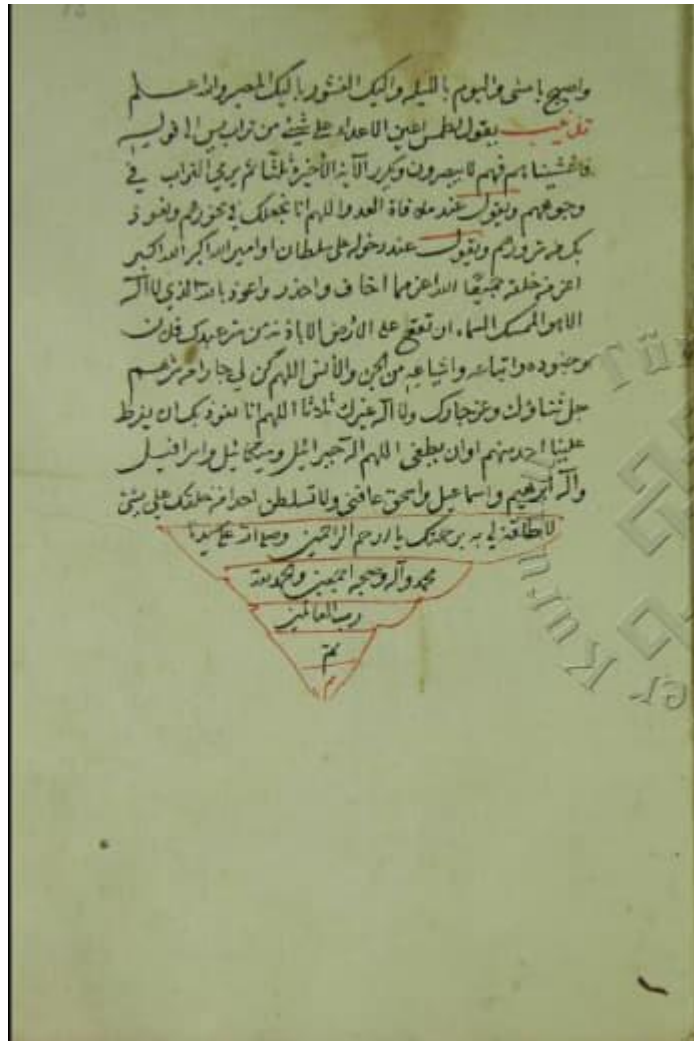 واصبح بامسى واليوم بالليلة واليك النشور باليك المصير والله اعلم
بقول لطمس اعين الاعداء على شيئ من تراب يس الى قوله
فاغشيناهم فهم لا يبصرون ويكرر الآية الأخيرة ثلثا ثم يرمي التراب في
وجوههم ويقول عند ملاقاة العدو اللهم انا نجعلك في نحورهم ونعوذ
بك من شرورهم ويقول عند دخوله على سلطان او امير الله اكبر الله اكبر
اعز من خلقه جميعًا الله اعز مما اخاف واحذر واعوذ بالله الذي لا اله
الا هو الممسك السماء ان تقع على الارض الا باذنه من شر عبدك فلان
وجنوده واتباعه واشياعه من الجن والأنس اللهم كن لي جارا من شرهم
جل ثناؤك وعز جارك ولا اله غيرك ثلاثا اللهم انا نعوذ بك ان يفرط
علينا احد منهم او ان يطغى اللهم اله جبرائيل وميكائيل واسرافيل
واله ابرهيم واسماعيل واسحق عافني ولا تسلطن احدا من خلقك علي بشئ
لا طاقة لي به برحمتك يا ارحم الراحمين وصلى الله على سيدنا
محمد وآله وصحبه اجمعين والحمد لله
رب العالمين
تم
م